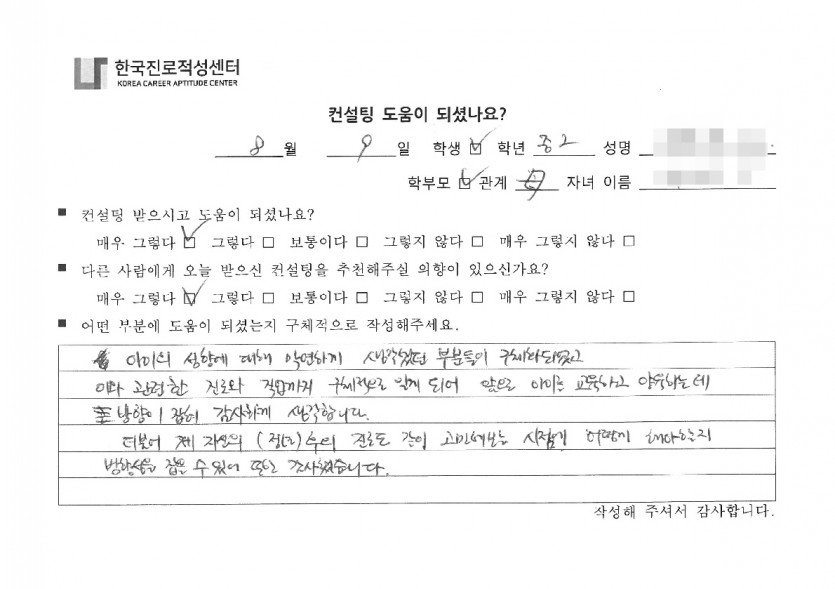 한국진로적성센터
KOREA CAREER APTITUDE CENTER
컨설팅 도움이 되셨나요?
8 월 9 일 학생 ☑ 학년 중2 성명
학부모 ☑ 관계 모 자녀 이름
■ 컨설팅 받으시고 도움이 되셨나요?
매우 그렇다 ☑ 그렇다 □ 보통이다 □ 그렇지 않다 □ 매우 그렇지 않다 □
■ 다른 사람에게 오늘 받으신 컨설팅을 추천해주실 의향이 있으신가요?
매우 그렇다 ☑ 그렇다 □ 보통이다 □ 그렇지 않다 □ 매우 그렇지 않다 □
■ 어떤 부분에 도움이 되셨는지 구체적으로 작성해주세요.
아이의 성향에 대해 막연하게 생각했던 부분들이 구체화되었고
이와 관련한 진로와 직업까지 구체적으로 알게 되어 앞으로 아이를 교육하고 양육하는데
방향이 잡혀 감사하게 생각합니다.
더불어 제 자신의 ( ) 후의 진로도 같이 고민해보는 시점에 어떻게 해야하는지
방향성을 잡을 수 있어 또한 감사했습니다.
작성해 주셔서 감사합니다.